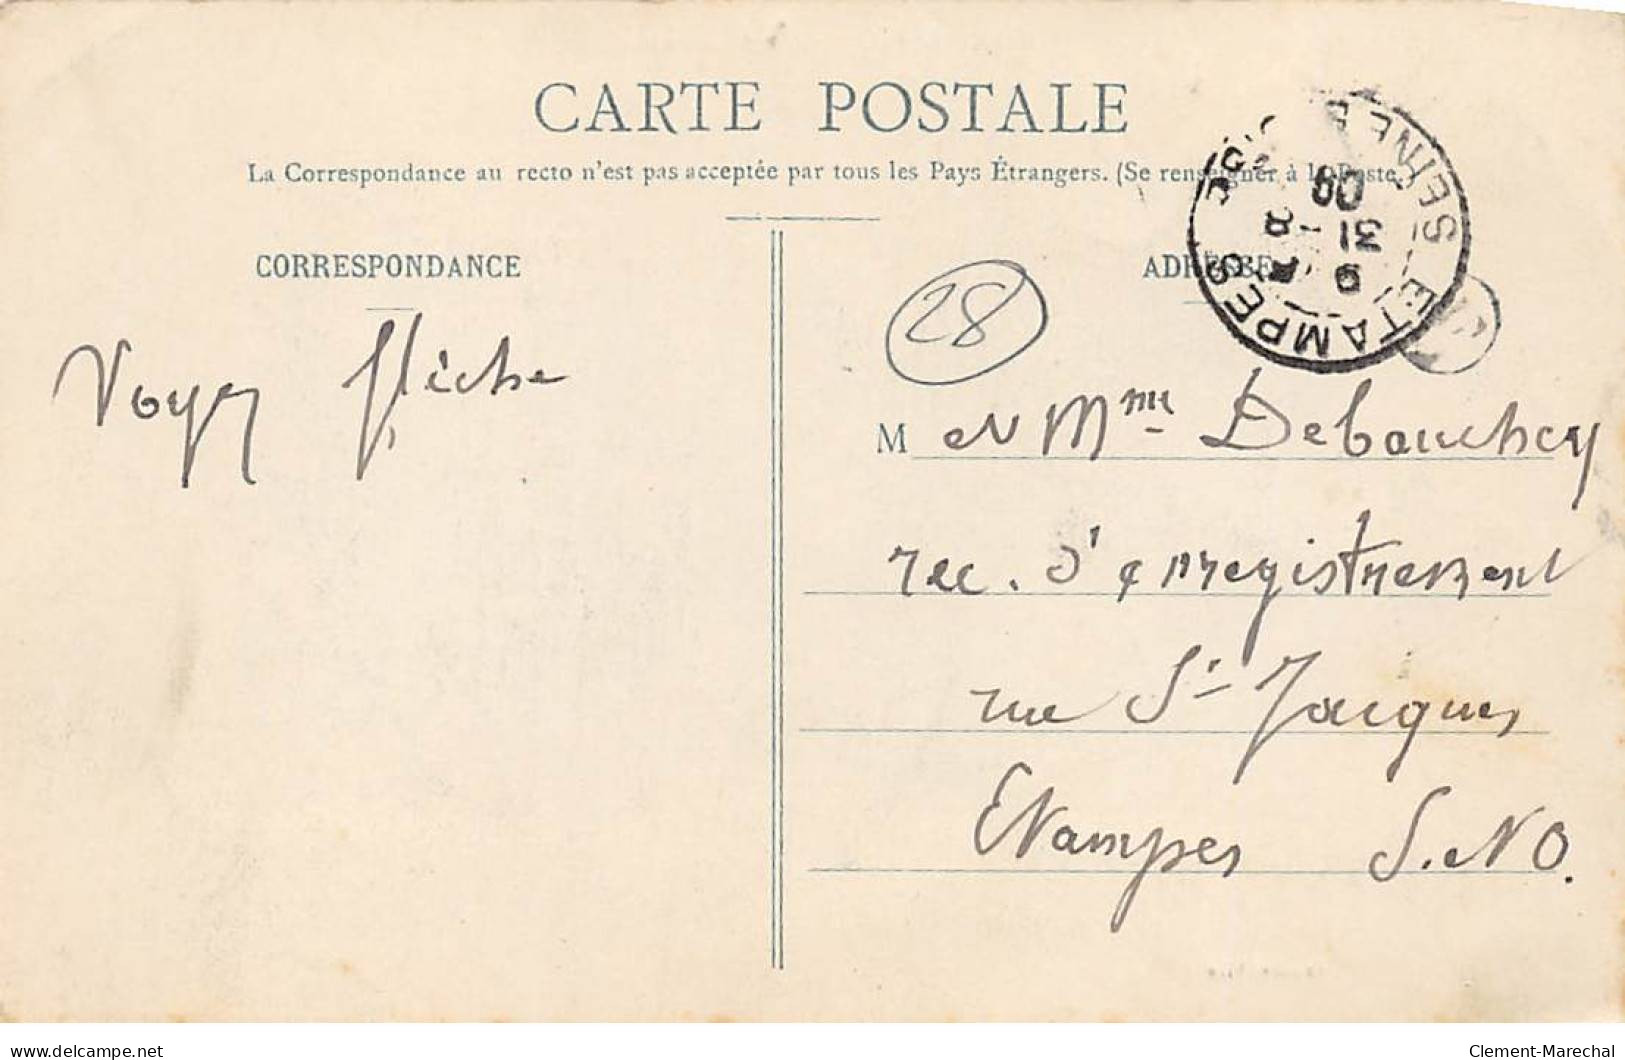 CARTE POSTALE
La Correspondance au recto n'est pas acceptée par tous les Pays Étrangers. (Se renseigner à la Poste.)
CORRESPONDANCE
ADRESSE
ETAMPES SEINE
31
09
28
Voyez flèche
M et Mme Debauchey
rec. d'enregistrement
rue St Jacques
Etampes S. et O.
delcampe.net
Clement-Marechal